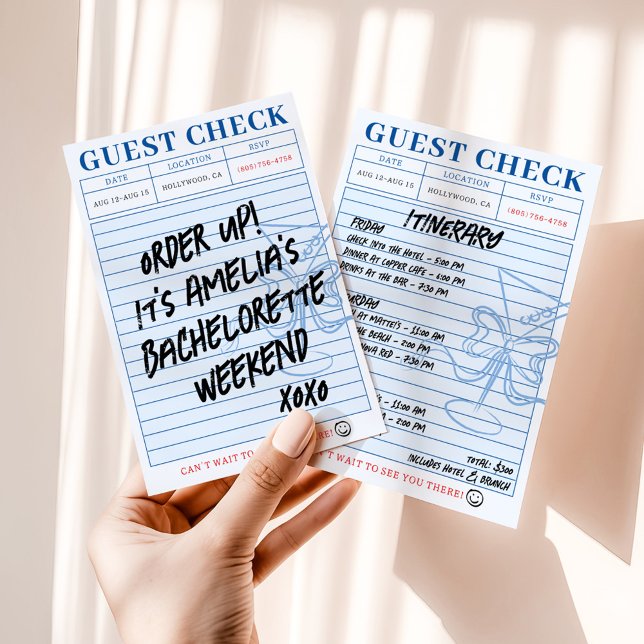 GUEST CHECK
DATE
AUG 12-AUG 15
LOCATION
HOLLYWOOD, CA
RSVP
(805)756-4758
ORDER UP!
IT'S AMELIA'S
BACHELORETTE
WEEKEND
XOXO
CAN'T WAIT TO SEE THERE!
GUEST CHECK
DATE
AUG 12-AUG 15
LOCATION
HOLLYWOOD, CA
RSVP
(805)756-4758
ITINERARY
FRIDAY
CHECK INTO THE HOTEL - 5:00 PM
DINNER AT COPPER CAFE - 6:00 PM
DRINKS AT THE BAR - 7:30 PM
AT MATTEI'S - 11:00 AM
THE BEACH - 2:00 PM
NOVA RED - 7:30 PM
- 11:00 AM
- 2:00 PM
TOTAL: $300
INCLUDES HOTEL & BRUNCH
WAIT TO SEE YOU THERE!